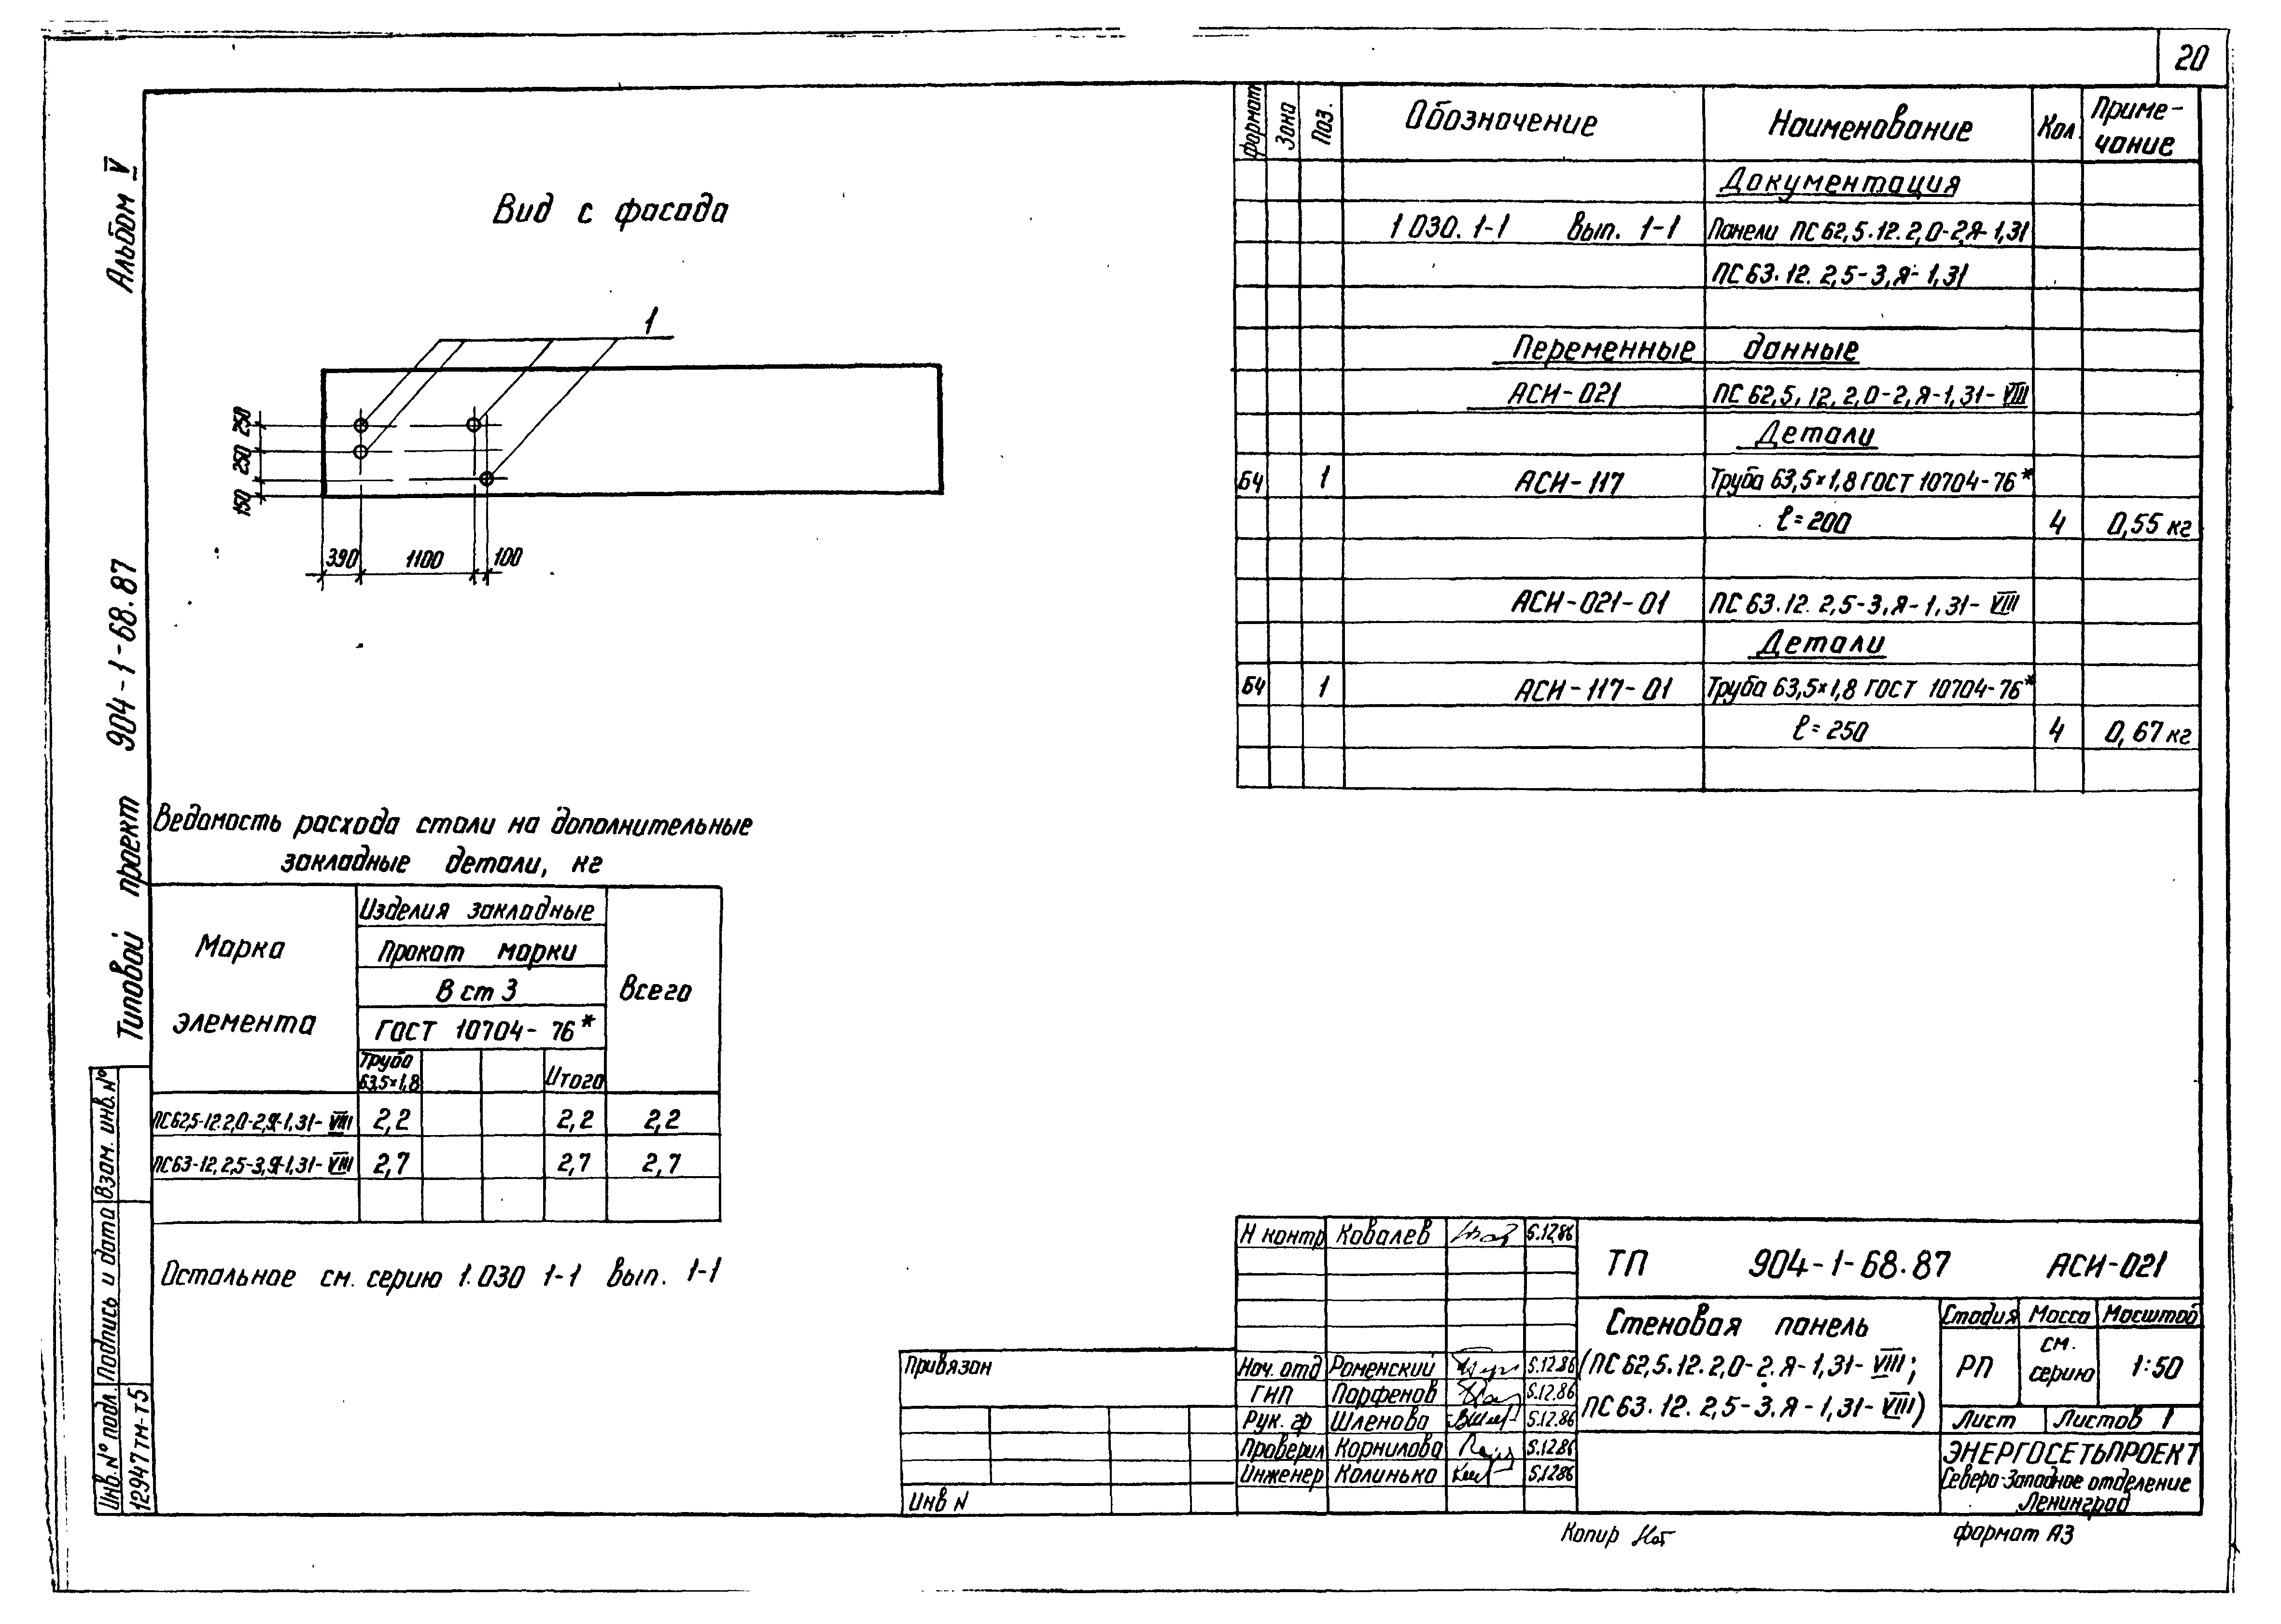 20
Альбом V
Типовой проект 904-1-68.87
Взам. инв. N°
Подпись и дата
Инв. N° подл.
12947тм-т5
Вид с фасада
1
250
250
150
390 1100 100
Формат Зона Поз. Обозначение Наименование Кол. Приме-
чание
Документация
1 030. 1-1 вып. 1-1 Панели ПС 62,5.12.2,0-2,Я-1,31
ПС 63.12. 2,5-3,Я-1,31
Переменные данные
АСИ-021 ПС 62,5, 12, 2,0-2,Я-1,31-VIII
Детали
БЧ 1 АСИ-117 Труба 63,5×1,8 ГОСТ 10704-76*
ℓ=200 4 0,55 кг
АСИ-021-01 ПС 63.12. 2,5-3,Я-1,31-VIII
Детали
БЧ 1 АСИ-117-01 Труба 63,5×1,8 ГОСТ 10704-76*
ℓ=250 4 0,67 кг
Ведомость расхода стали на дополнительные
закладные детали, кг
Марка
элемента
Изделия закладные
Прокат марки
В ст 3
ГОСТ 10704-76*
Труба
63,5×1,8
Итого
Всего
ПС62,5-12.2,0-2,Я-1,31-VIII 2,2 2,2 2,2
ПС63-12, 2,5-3,Я-1,31-VIII 2,7 2,7 2,7
Остальное см. серию 1.030 1-1 вып. 1-1
Привязан
Инв N
Н контр Ковалев 5.12.86
Нач. отд Роменский 5.12.86
ГИП Парфенов 5.12.86
Рук. гр Шленова 5.12.86
Проверил Корнилова 5.12.86
Инженер Калинько 5.12.86
ТП 904-1-68.87 АСИ-021
Стеновая панель
(ПС 62,5.12.2,0-2.Я-1,31-VIII;
ПС 63.12. 2,5-3.Я-1,31-VIII)
Стадия Масса Масштаб
РП см.
серию 1:50
Лист Листов 1
ЭНЕРГОСЕТЬПРОЕКТ
Северо-Западное отделение
Ленинград
Копир
формат А3